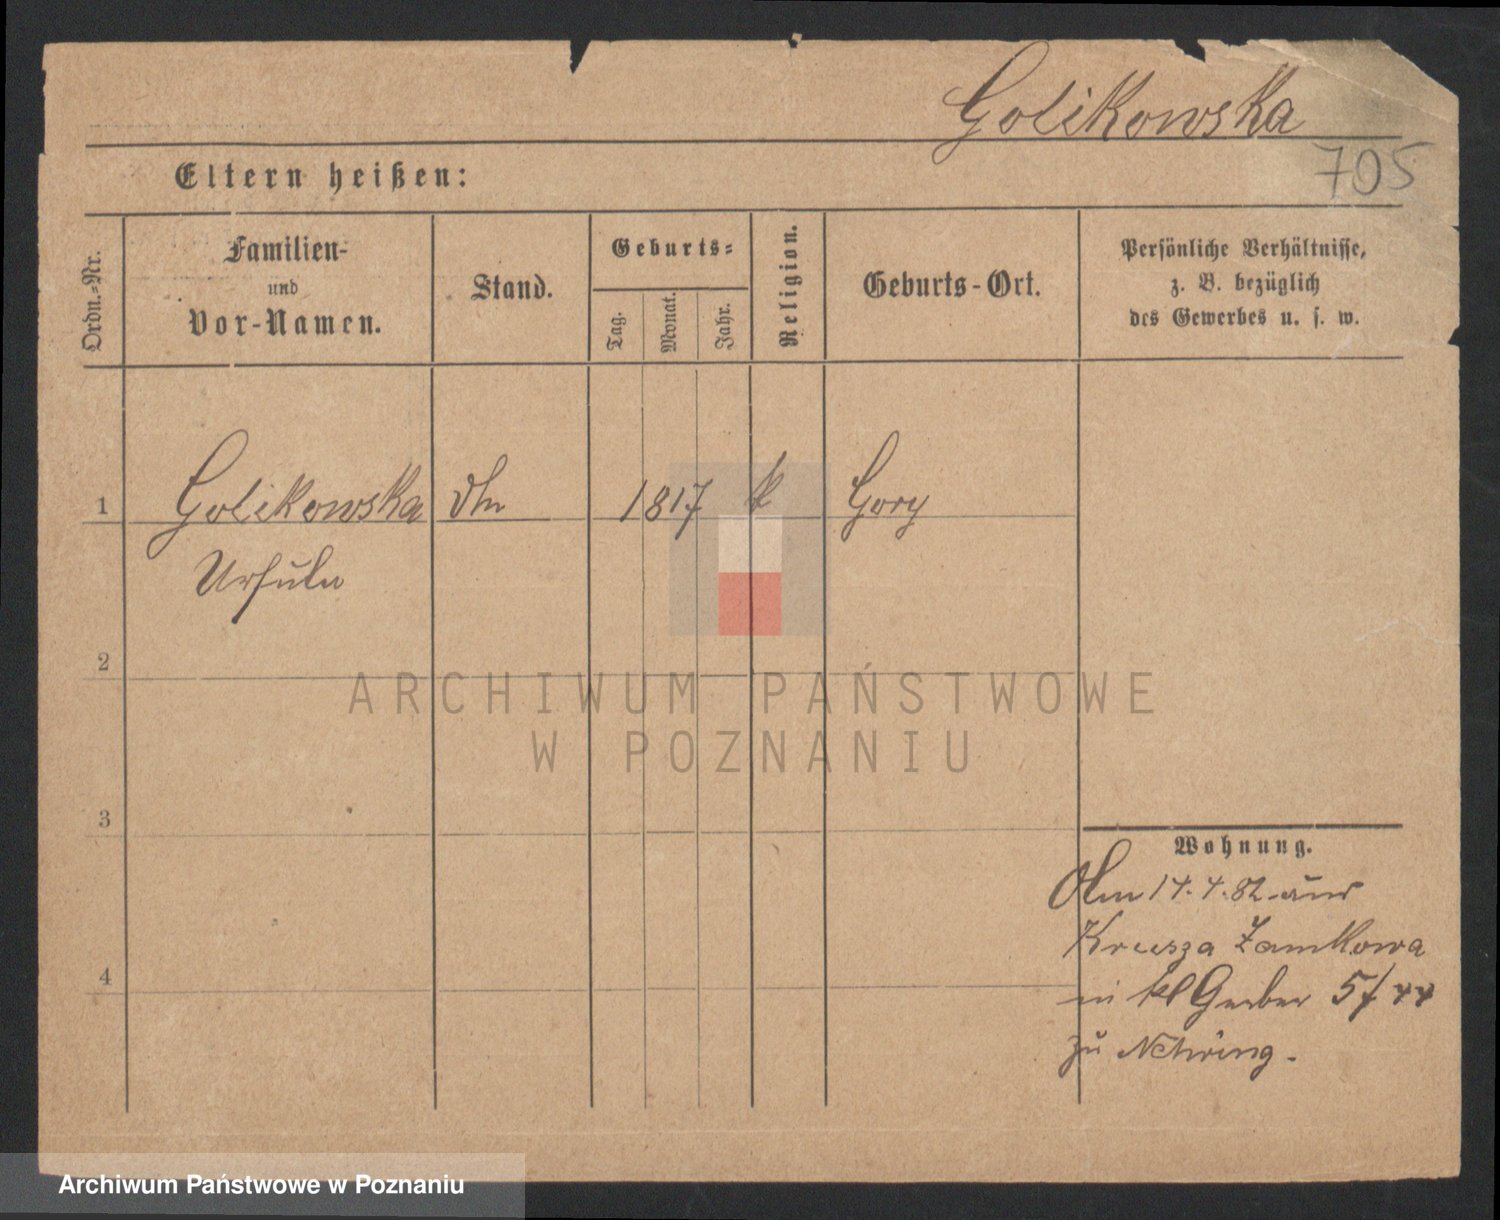 Golikowska
705
Eltern heißen:
Ordn.-Nr.
Familien-
und
Vor-Namen.
Stand.
Geburts-
Tag.
Monat.
Jahr.
Religion.
Geburts-Ort.
Persönliche Verhältnisse,
z. B. bezüglich
des Gewerbes u. s. w.
1 Golikowska 1817 k Gory
Ursula
2
3
4
Wohnung.
14.4.82 aus
Zamkowa
in kl Gerber
zu Nehring.
ARCHIWUM PAŃSTWOWE
W POZNANIU
Archiwum Państwowe w Poznaniu